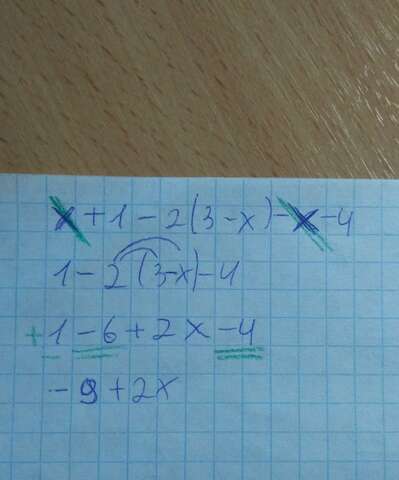 x + 1 - 2(3 - x) - x - 4
1 - 2(3 - x) - 4
+1 - 6 + 2x - 4
- 9 + 2x